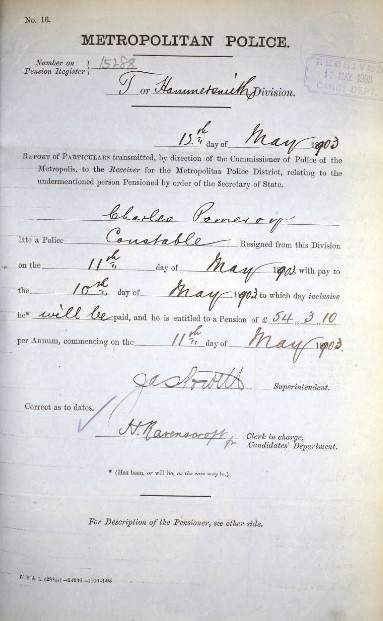 No. 16.
METROPOLITAN POLICE.
RECEIVED
Number on
Pension Register } 15282
CANDT DEPT.
T or Hammersmith Division.
15th day of May 1903
REPORT OF PARTICULARS transmitted, by direction of the Commissioner of Police of the
Metropolis, to the Receiver for the Metropolitan Police District, relating to the
undermentioned person Pensioned by order of the Secretary of State.
Charles Pomeroy
late a Police Constable Resigned from this Division
on the 11th day of May 1903, with pay to
the 10th day of May 1903 to which day inclusive
he* will be paid, and he is entitled to a Pension of £ 54 3 10
per Annum, commencing on the 11th day of May 1903.
Superintendent.
Correct as to dates.
H. Ravenscroft
Clerk in charge,
Candidates' Department.
* (Has been, or will be, as the case may be.)
For Description of the Pensioner, see other side.